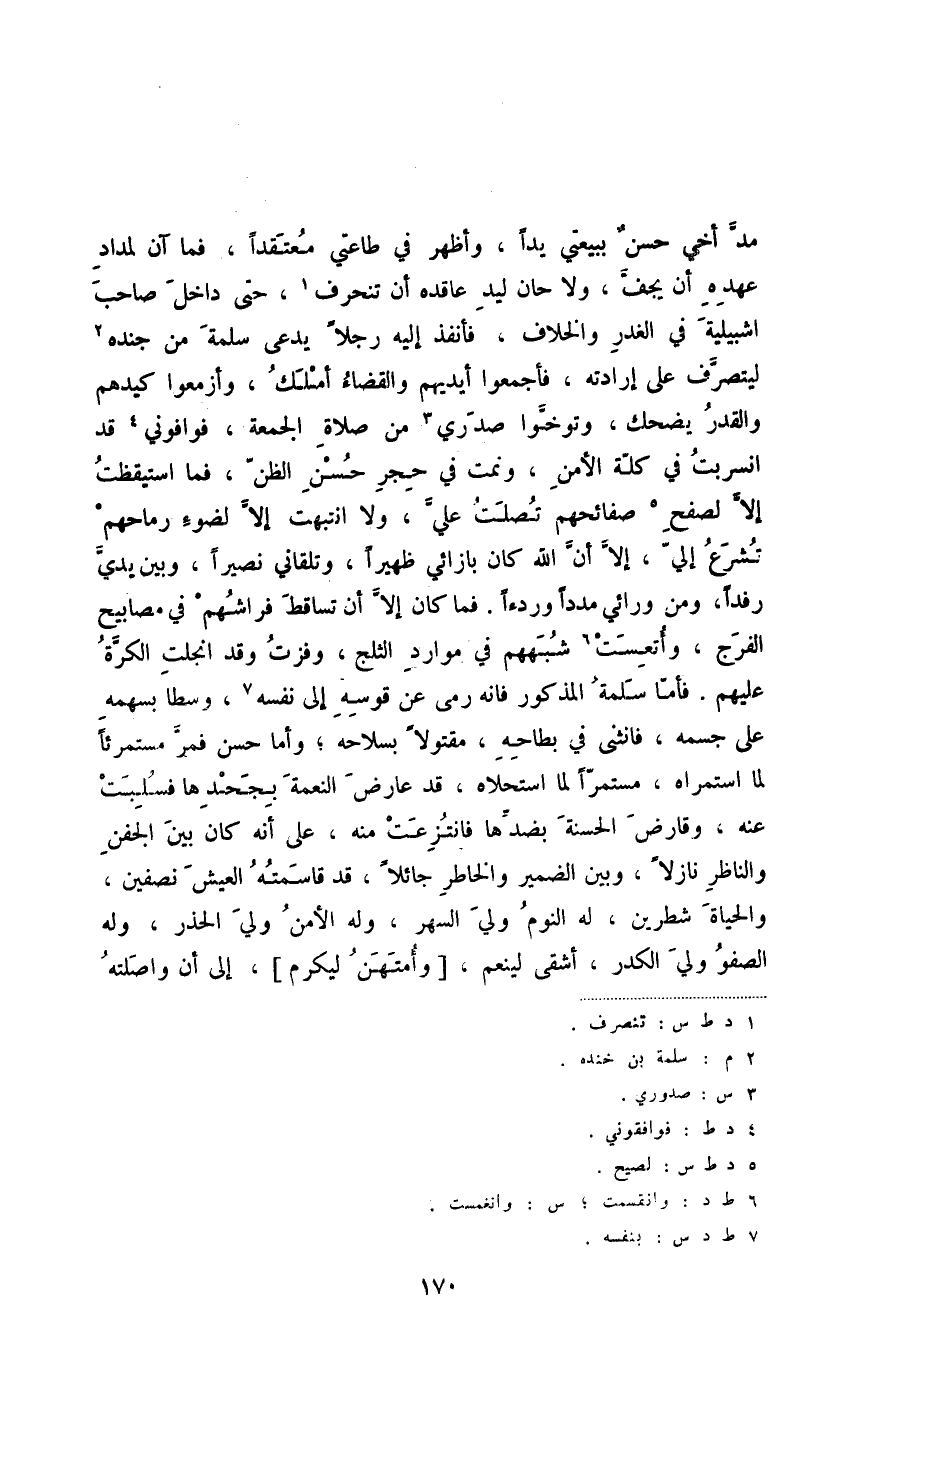 مدَّ أخي حسنٌ ببيعتي يداً ، وأظهر في طاعتي مُعتَقداً ، فما آن لمدادِ
عهدِهِ أن يجفَّ ، ولا حان ليدِ عاقده أن تنحرف١ ، حتى داخلَ صاحبَ
اشبيليةَ في الغدرِ والخلاف ، فأنفذ إليه رجلاً يدعى سلمةَ من جنده٢
ليتصرَّف على إرادته ، فأجمعوا أيديهم والقضاءُ أمْلَكُ ، وأزمعوا كيدهم
والقدرُ يضحك ، وتوخَّوا صدّري٣ من صلاةِ الجمعة ، فوافوني٤ قد
انسربتُ في كلّة الأمنِ ، ونمت في حِجرِ حُسْنِ الظنّ ، فما استيقظتُ
إلاَّ لصفحِ٥ صفائحهم تُصلَتُ عليَّ ، ولا انتبهت إلاَّ لضوءِ رماحهمْ
تُشرَعُ إليّ ، إلاَّ أنَّ الله كان بازائي ظهيراً ، وتلقاني نصيراً ، وبين يديَّ
رفداً، ومن ورائي مدداً وردءاً . فما كان إلاَّ أن تساقطَ فراشُهمْ في مصابيح
الفرَج ، وأُتعِسَتْ٦ شُبَههم في مواردِ الثلج ، وفزتُ وقد انجلتِ الكرَّةُ
عليهم . فأمّا سَلمةُ المذكور فانه رمى عن قوسِهِ إلى نفسه٧ ، وسطا بسهمهِ
على جسمه ، فانثنى في بطاحِهِ ، مقتولاً بسلاحه ؛ وأما حسن فمرَّ مستمرئاً
لما استمراه ، مستمرّاً لما استحلاه ، قد عارضَ النعمةَ بِجَحْدِها فسُلِبَتْ
عنه ، وقارضَ الحسنةَ بضدِّها فانتُزِعَتْ منه ، على أنه كان بينَ الجفنِ
والناظرِ نازلاً ، وبين الضميرِ والخاطرِ جائلاً ، قد قاسَمتُهُ العيشَ نصفين ،
والحياةَ شطرين ، له النومُ ولي َ السهر ، وله الأمنُ ولي َ الحذر ، وله
الصفوُ ولي َ الكدر ، أشقى لينعم ، [ وأُمتَهَنُ ليكرم ] ، إلى أن واصَلتهُ
١ د ط س : تنصرف .
٢ م : سلمة بن خنده .
٣ س : صدوري .
٤ د ط : فوافقوني .
٥ د ط س : لصيح .
٦ ط د : وانقسمت ؛ س : وانغمست .
٧ ط د س : بنفسه .
١٧٠